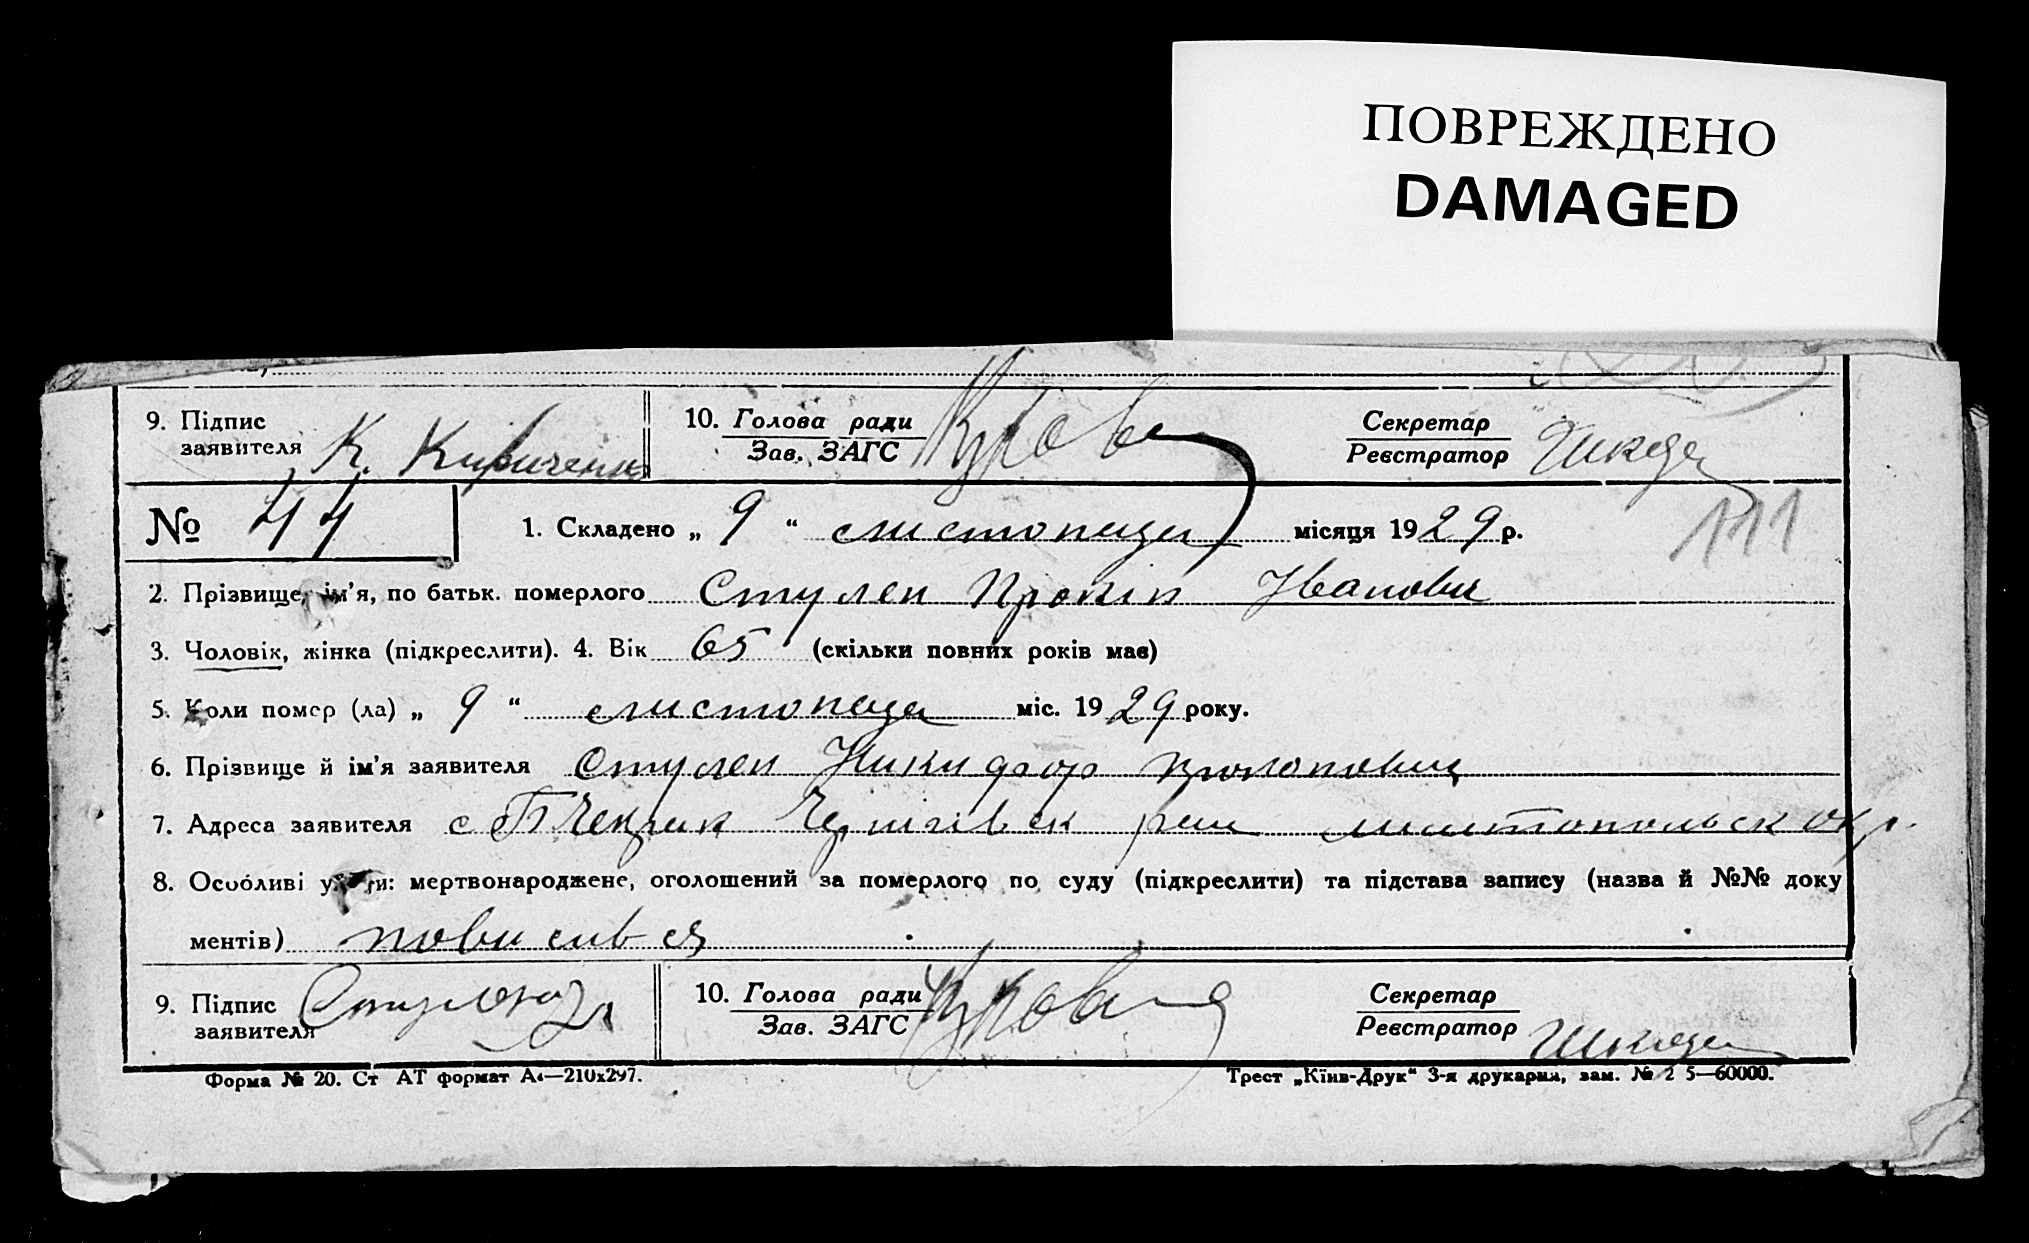 ПОВРЕЖДЕНО
DAMAGED
9. Підпис заявителя К. Кириченко 10. Голова ради Зав. ЗАГС Секретар Реєстратор
№ 44 1. Складено „ 9 “ листопада місяця 1929 р. 111
2. Прізвище, ім'я, по батьк. померлого Стулен Прокіп Іванович
3. Чоловік, жінка (підкреслити). 4. Вік 65 (скільки повних років мав)
5. Коли помер (ла) „ 9 “ листопада міс. 1929 року.
6. Прізвище й ім'я заявителя Стулен Никифор Прокопович
7. Адреса заявителя с Чернігівск рай окр.
8. Особливі ув ги: мертвонароджене, оголошений за померлого по суду (підкреслити) та підстава запису (назва й №№ доку
ментів) повисився
9. Підпис заявителя 10. Голова ради Зав. ЗАГС Секретар Реєстратор
Форма № 20. Ст АТ формат А4—210х297. Трест „Київ-Друк“ 3-я друкарня, зам. № 2 5—60000.